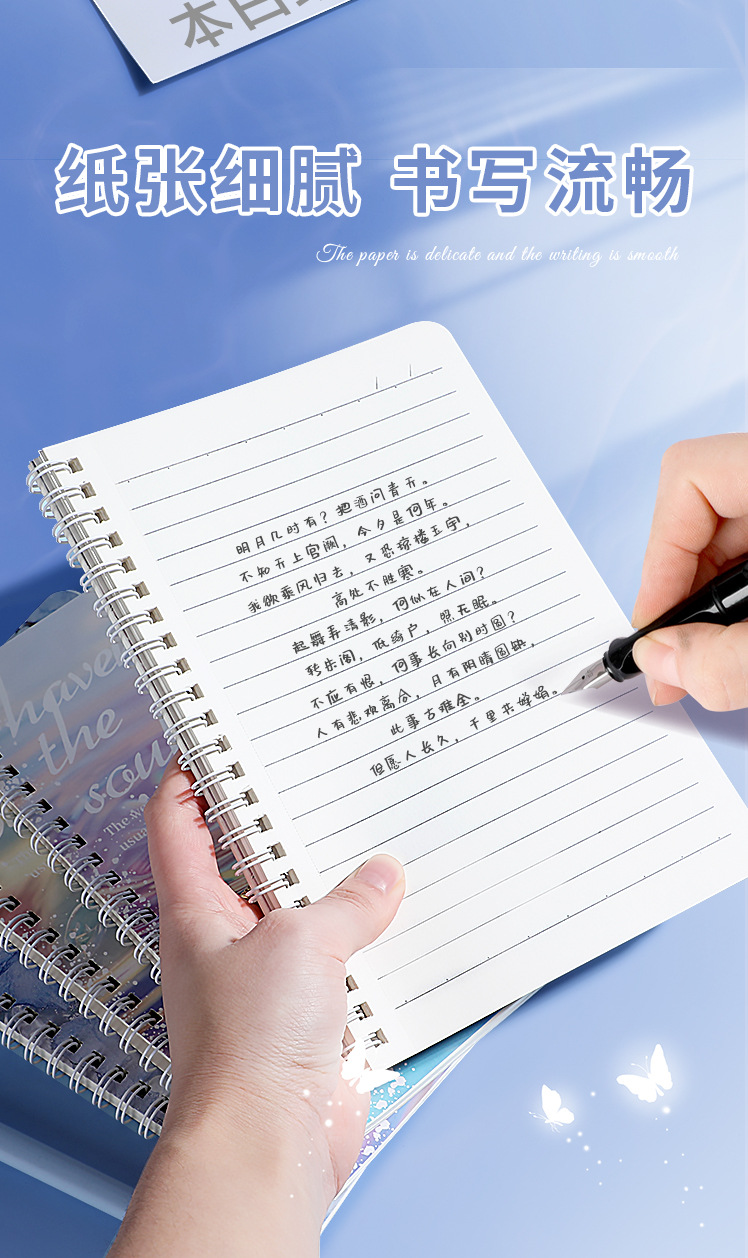 本日
纸张细腻 书写流畅
The paper is delicate and the writing is smooth
明月几时有？把酒问青天。
不知天上宫阙，今夕是何年。
我欲乘风归去，又恐琼楼玉宇，
高处不胜寒。
起舞弄清影，何似在人间？
转朱阁，低绮户，照无眠。
不应有恨，何事长向别时圆？
人有悲欢离合，月有阴晴圆缺，
此事古难全。
但愿人长久，千里共婵娟。
the